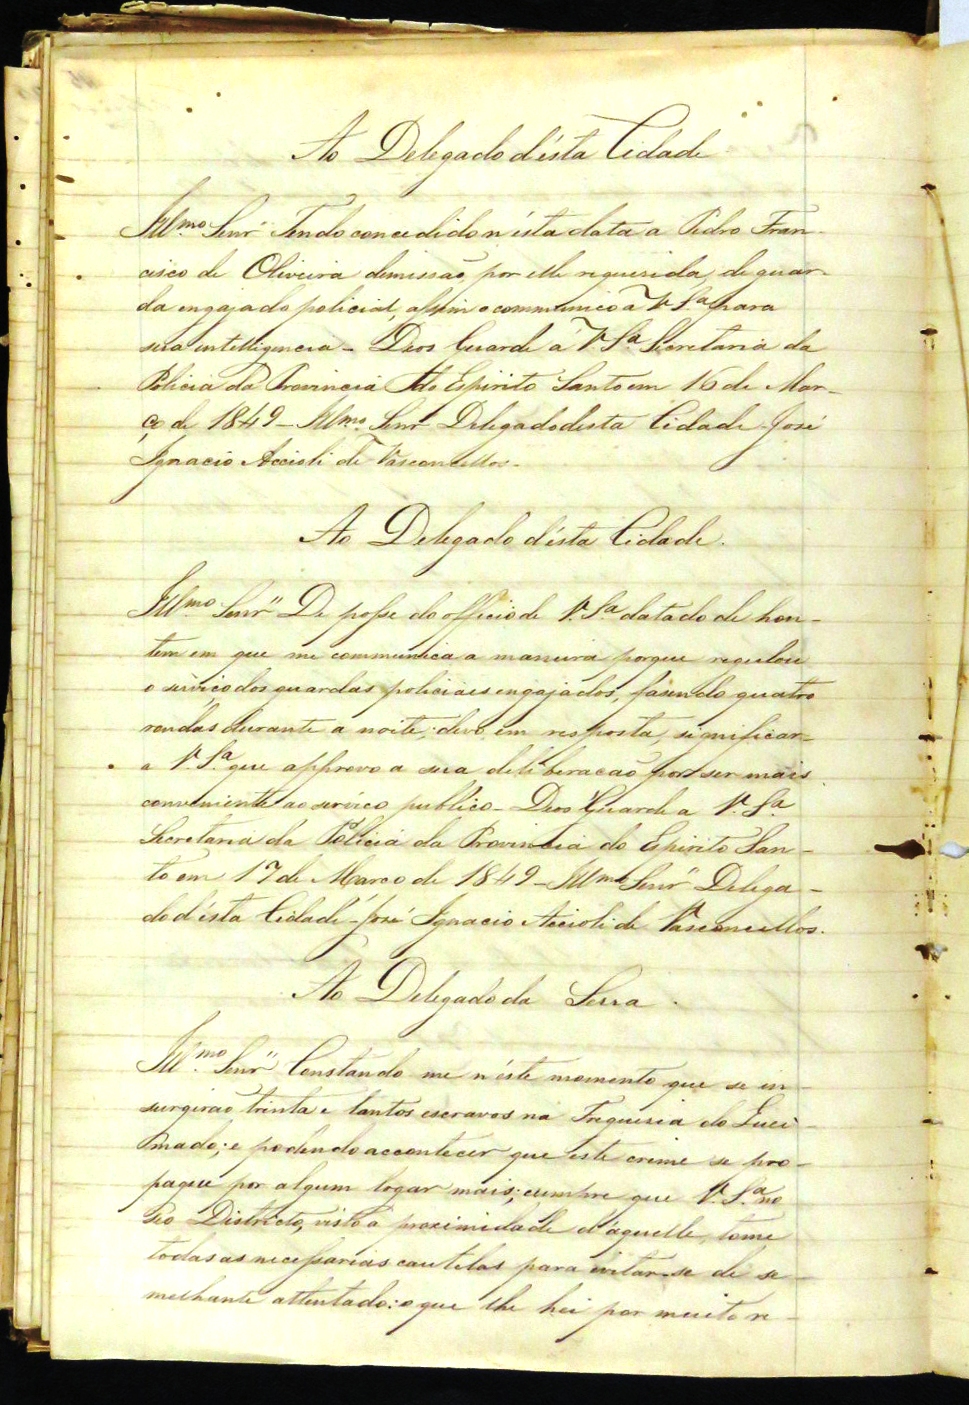 Ao Delegado d'ésta Cidade
Illmo. Senr. Tendo concedido n'ésta data a Pedro Fran-
cisco de Oliveira demissaõ, por elle requerida, de guar-
da engajado policial, assim o communico á V. Sa. para
sua intelligencia - Deos Guarde á V. Sa. Secretaria da
Policia da Provincia do Espirito Santo em 16 de Mar-
ço de 1849 - Illmo. Senr. Delegado desta Cidade - José
Ignacio Accioli de Vasconcellos.
Ao Delegado d'ésta Cidade.
Illmo. Senr. De posse do officio de V. Sa. datado de hon-
tem em que me communica a maneira porque regulou
o serviço dos guardas policiaes engajados, fasendo quatro
rondas durante a noite; devo, em resposta, significar
a V. Sa. que approvo a sua deliberacaõ por ser mais
conveniente ao serviço publico - Deos Guarde a V. Sa.
Secretaria da Policia da Provincia do Espirito San-
to em 17 de Março de 1849 - Illmo. Senr. Delega-
do d'ésta Cidade - José Ignacio Accioli de Vasconcellos.
Ao Delegado da Serra.
Illmo. Senr. Constando me n'éste momento que se in-
surgiraõ trinta e tantos escravos na Freguesia do Quei-
mado; e podendo accontecer que este crime se pro-
pague por algum logar mais; cumpre que V. Sa. no
seo Districto, visto a proximidade d'aquelle, tome
todas as necessarias cautelas para evitar-se de se-
melhante attentado: o que lhe hei por muito re-